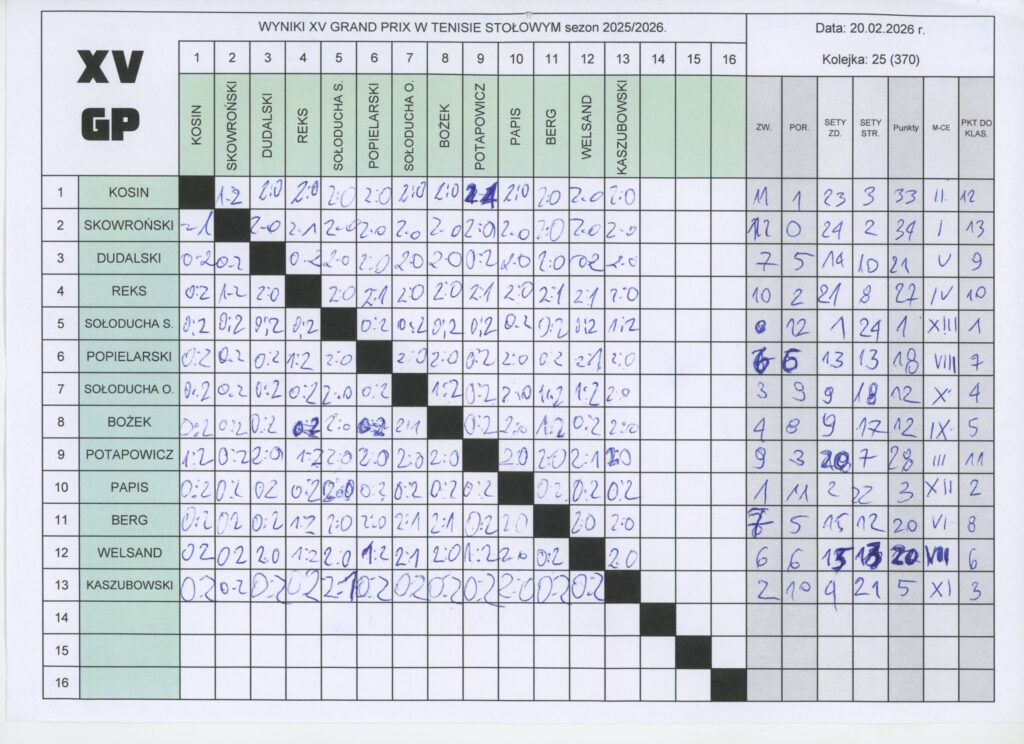 WYNIKI XV GRAND PRIX W TENISIE STOŁOWYM sezon 2025/2026.
Data: 20.02.2026 r.
XV
GP
1 2 3 4 5 6 7 8 9 10 11 12 13 14 15 16
Kolejka: 25 (370)
KOSIN SKOWROŃSKI DUDALSKI REKS SOŁODUCHA S. POPIELARSKI SOŁODUCHA O. BOŻEK POTAPOWICZ PAPIS BERG WELSAND KASZUBOWSKI
ZW. POR. SETY ZD. SETY STR. Punkty M-CE PKT DO KLAS.
1 KOSIN 1-2 2:0 2:0 2:0 2:0 2:0 2:0 2:1 2:0 2:0 2:0 2:0 11 1 23 3 33 II 12
2 SKOWROŃSKI 2-1 2-0 2-1 2-0 2-0 2-0 2-0 2:0 2-0 2:0 2:0 2-0 12 0 24 2 34 I 13
3 DUDALSKI 0-2 0-2 0-2 2-0 2:0 2:0 2:0 0:2 2:0 2:0 0:2 2:0 7 5 14 10 21 V 9
4 REKS 0:2 1-2 2:0 2:0 2:1 2:0 2:0 2:1 2:0 2:1 2:1 2:0 10 2 21 8 27 IV 10
5 SOŁODUCHA S. 0:2 0:2 0:2 0:2 0:2 0:2 0:2 0:2 0:2 0:2 0:2 1:2 0 12 1 24 1 XIII 1
6 POPIELARSKI 0:2 0-2 0:2 1:2 2:0 2:0 2:0 0:2 2:0 0:2 2:1 2:0 6 6 13 13 18 VIII 7
7 SOŁODUCHA O. 0:2 0:2 0:2 0:2 2:0 0:2 1:2 0:2 2:0 1:2 1:2 2:0 3 9 9 18 12 X 4
8 BOŻEK 0:2 0:2 0:2 0:2 2:0 0:2 2:1 0:2 2:0 1:2 0:2 2:0 4 8 9 17 12 IX 5
9 POTAPOWICZ 1:2 0:2 2:0 1:2 2:0 2:0 2:0 2:0 2:0 2:0 2:1 2:0 9 3 20 7 28 III 11
10 PAPIS 0:2 0:2 0:2 0:2 2:0 0:2 0:2 0:2 0:2 0:2 0:2 0:2 1 11 2 22 3 XII 2
11 BERG 0:2 0:2 0:2 1:2 2:0 2:0 2:1 2:1 0:2 2:0 2:0 2:0 7 5 15 12 20 VI 8
12 WELSAND 0:2 0:2 2:0 1:2 2:0 1:2 2:1 2:0 1:2 2:0 0:2 2:0 6 6 13 13 20 VII 6
13 KASZUBOWSKI 0:2 0:2 0:2 0:2 2:1 0:2 0:2 0:2 0:2 2:0 0:2 0:2 2 10 4 21 5 XI 3
14
15
16